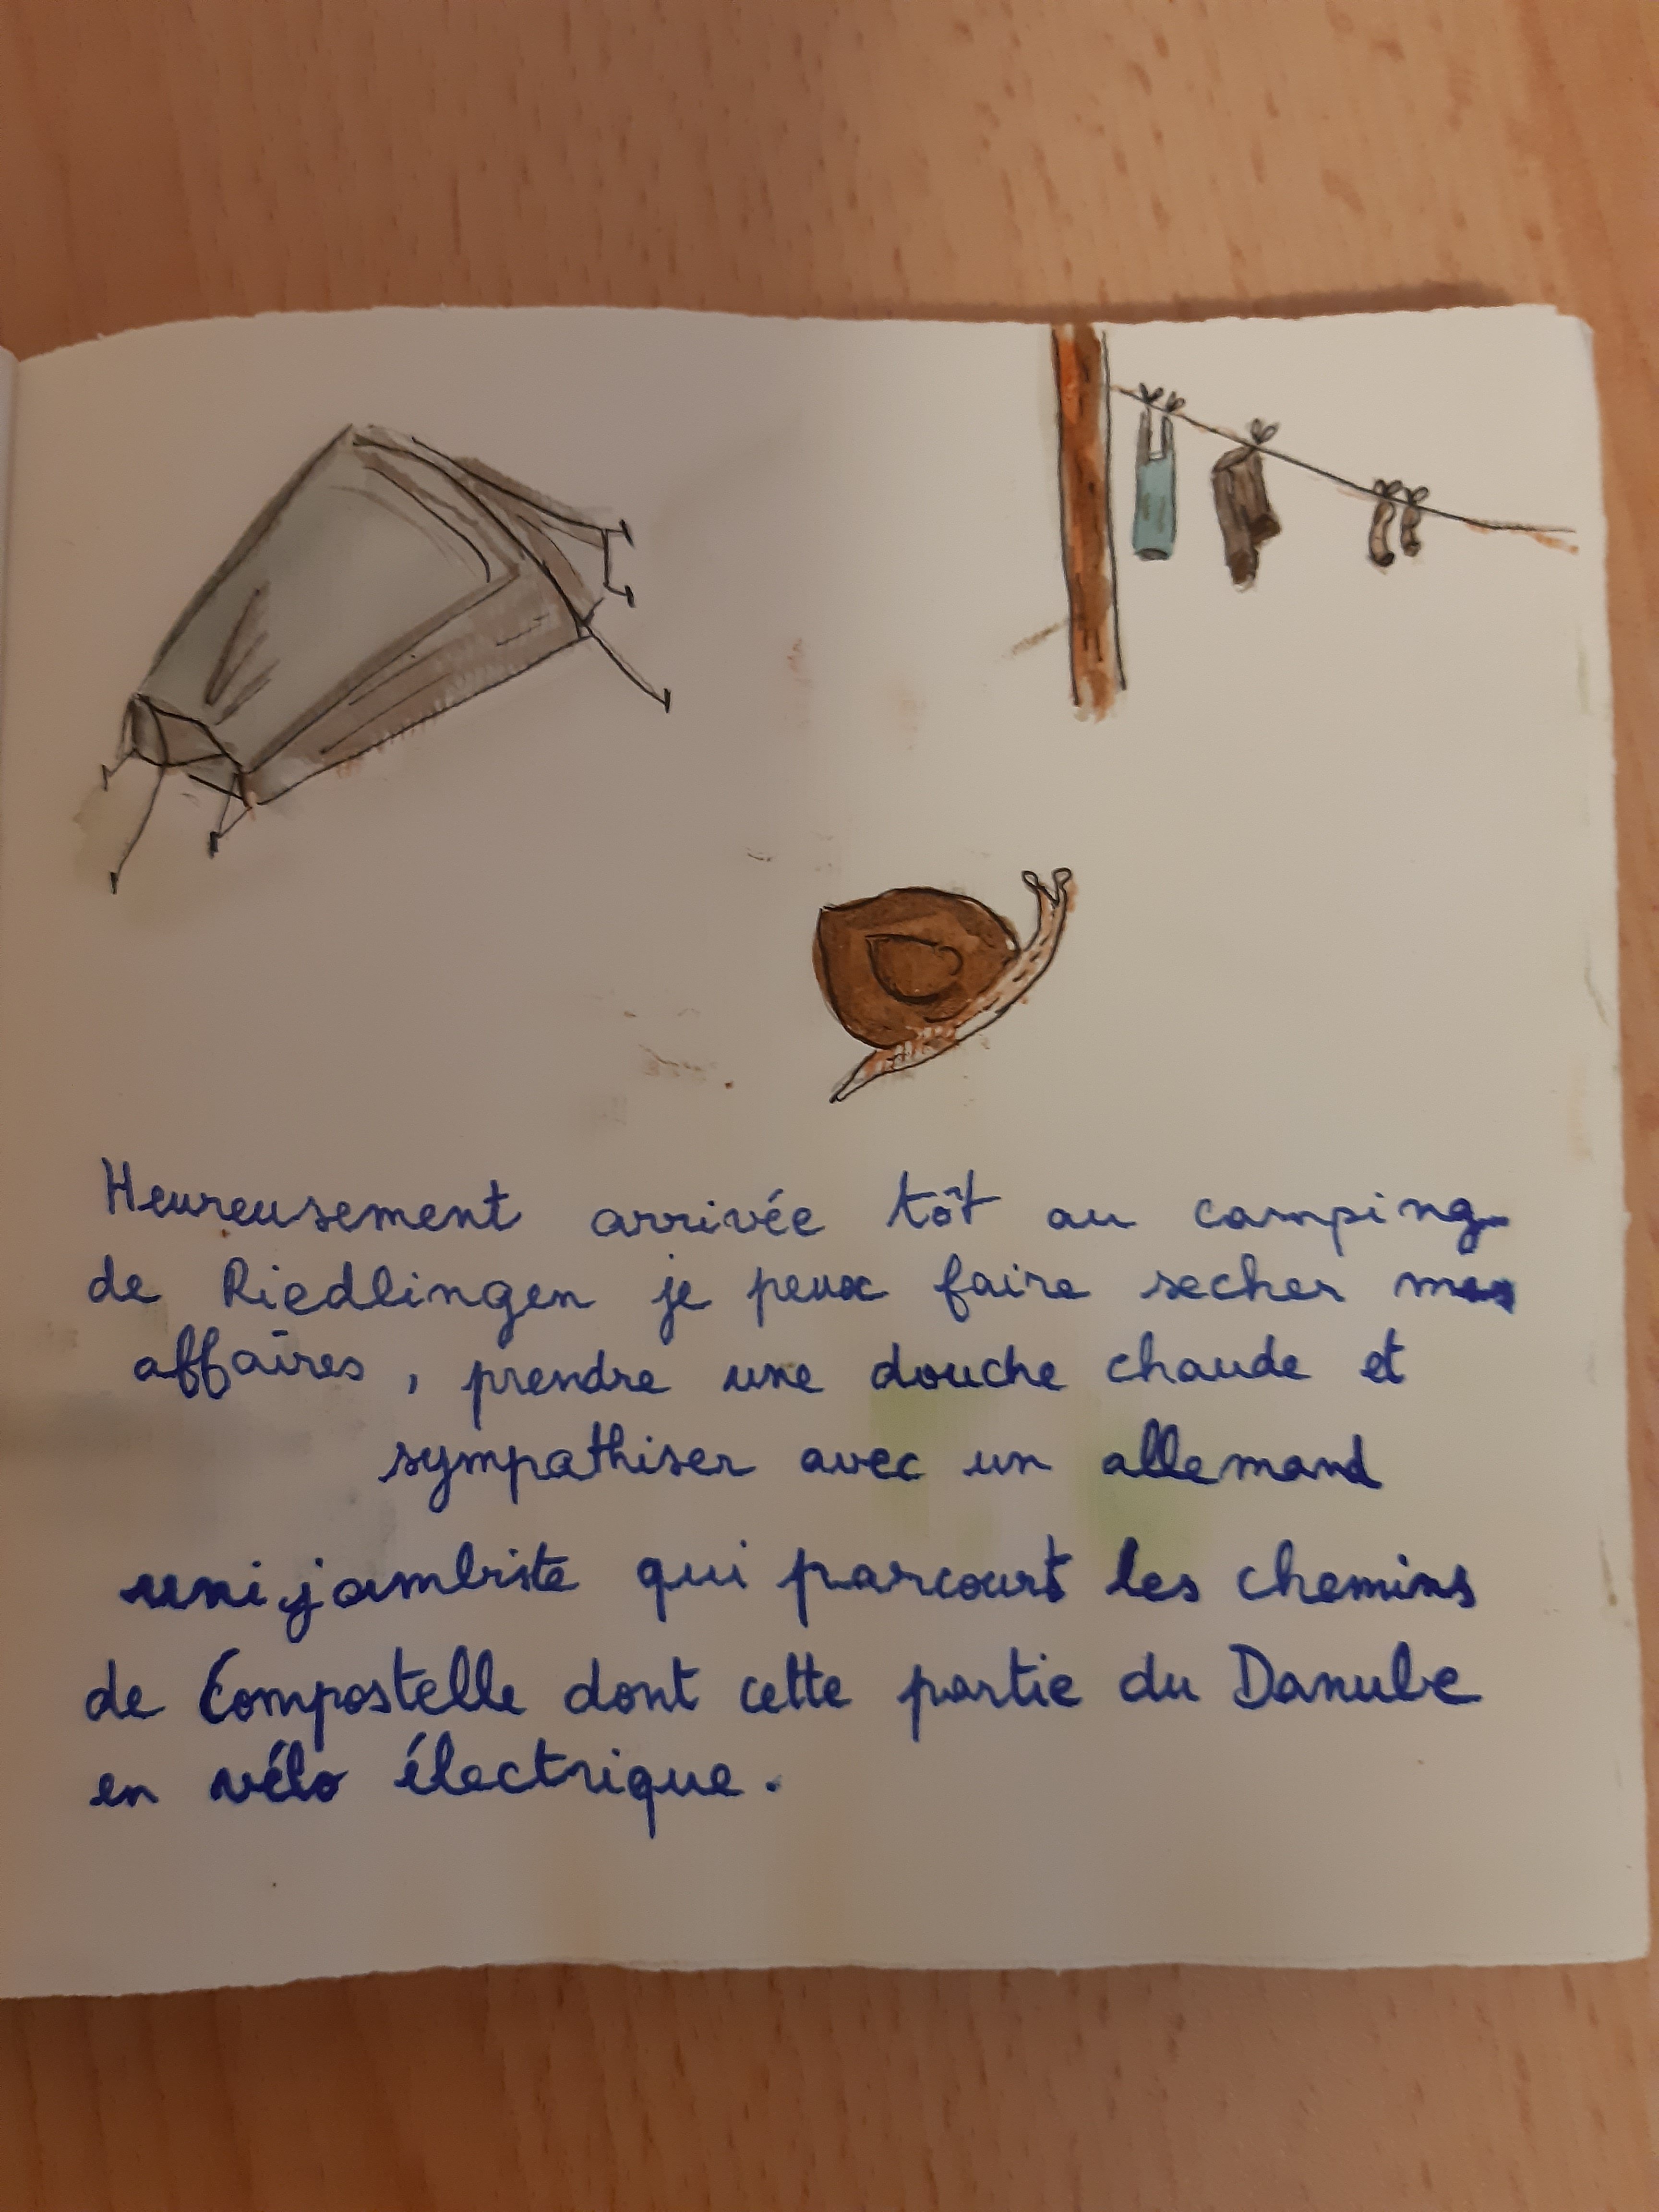 Heureusement arrivée tôt au camping
de Riedlingen je peux faire secher mes
affaires, prendre une douche chaude et
sympathiser avec un allemand
unijambiste qui parcourt les chemins
de Compostelle dont cette partie du Danube
en vélo électrique.